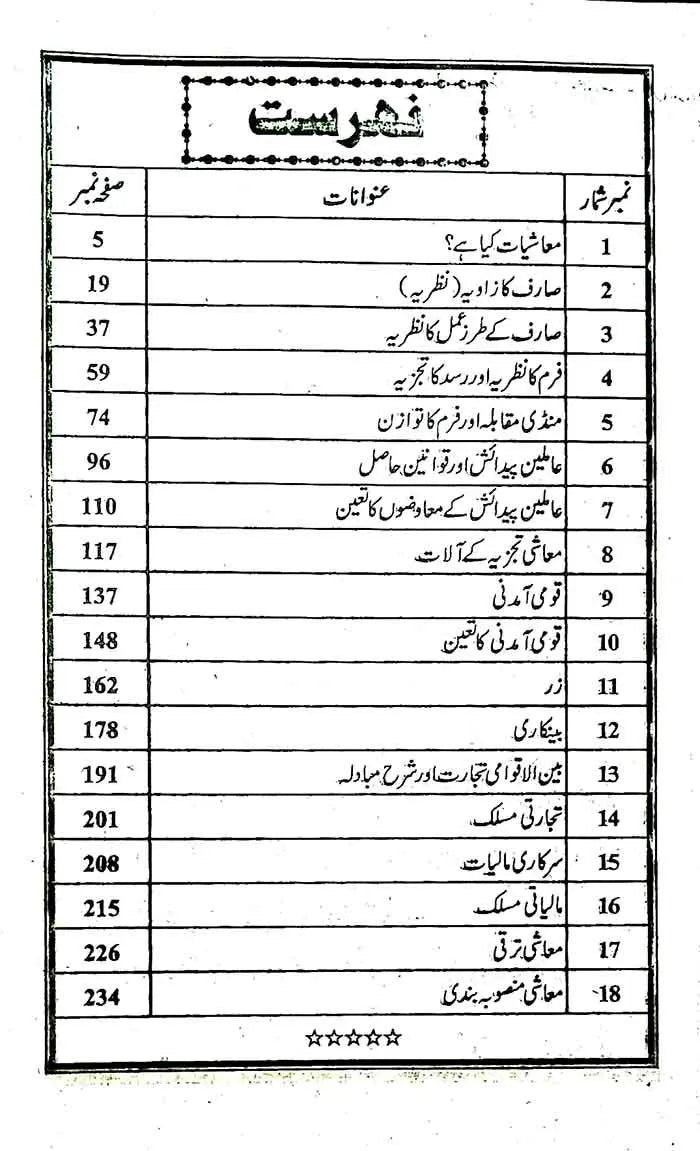 فہرست
نمبر شمار عنوانات صفحہ نمبر
1 معاشیات کیا ہے؟ 5
2 صارف کا زاویہ (نظریہ) 19
3 صارف کے طرز عمل کا نظریہ 37
4 فرم کا نظریہ اور رسد کا تجزیہ 59
5 منڈی مقابلہ اور فرم کا توازن 74
6 عاملین پیدائش اور قوانین حاصل 96
7 عاملین پیدائش کے معاوضوں کا تعین 110
8 معاشی تجزیہ کے آلات 117
9 قومی آمدنی 137
10 قومی آمدنی کا تعین 148
11 زر 162
12 بینکاری 178
13 بین الاقوامی تجارت اور شرح مبادلہ 191
14 تجارتی مسلک 201
15 سرکاری مالیات 208
16 مالیاتی مسلک 215
17 معاشی ترقی 226
18 معاشی منصوبہ بندی 234
☆☆☆☆☆